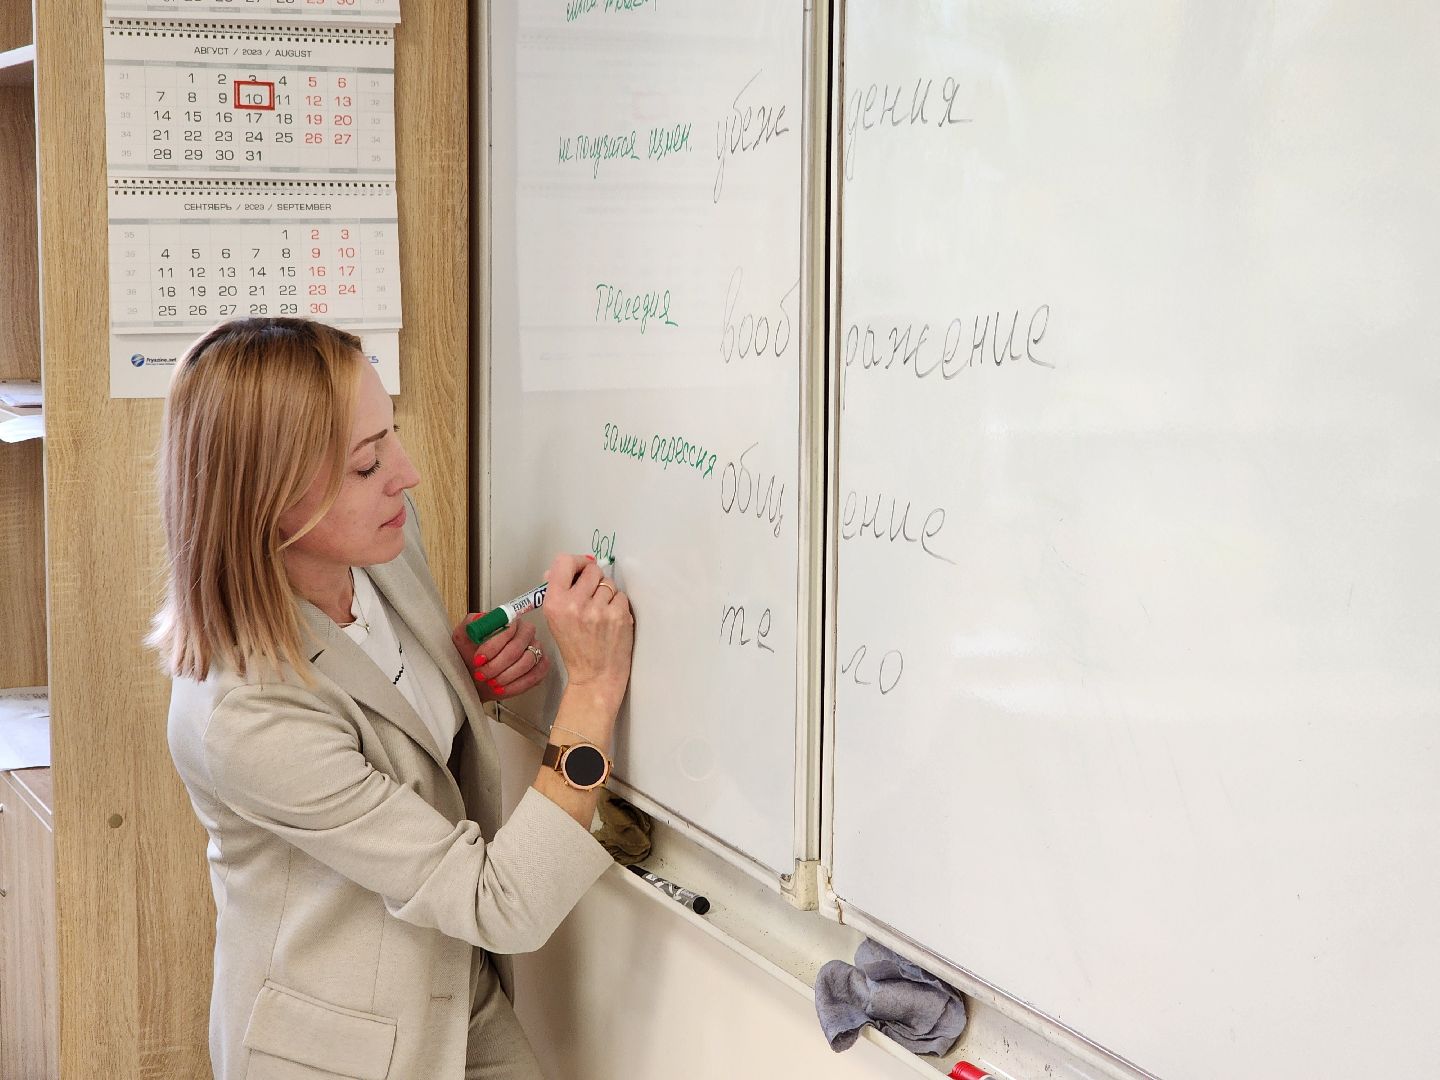 28 29 30
АВГУСТ / 2023 / AUGUST
31 1 2 3 4 5 6 31
32 7 8 9 10 11 12 13 32
33 14 15 16 17 18 19 20 33
34 21 22 23 24 25 26 27 34
35 28 29 30 31 35
СЕНТЯБРЬ / 2023 / SEPTEMBER
35 1 2 3 35
36 4 5 6 7 8 9 10 36
37 11 12 13 14 15 16 17 37
38 18 19 20 21 22 23 24 38
39 25 26 27 28 29 30 39
fryazino.net
не получится измен.
убеждения
трагедия
воображение
замкн агрессия
общение
тело
MARKER